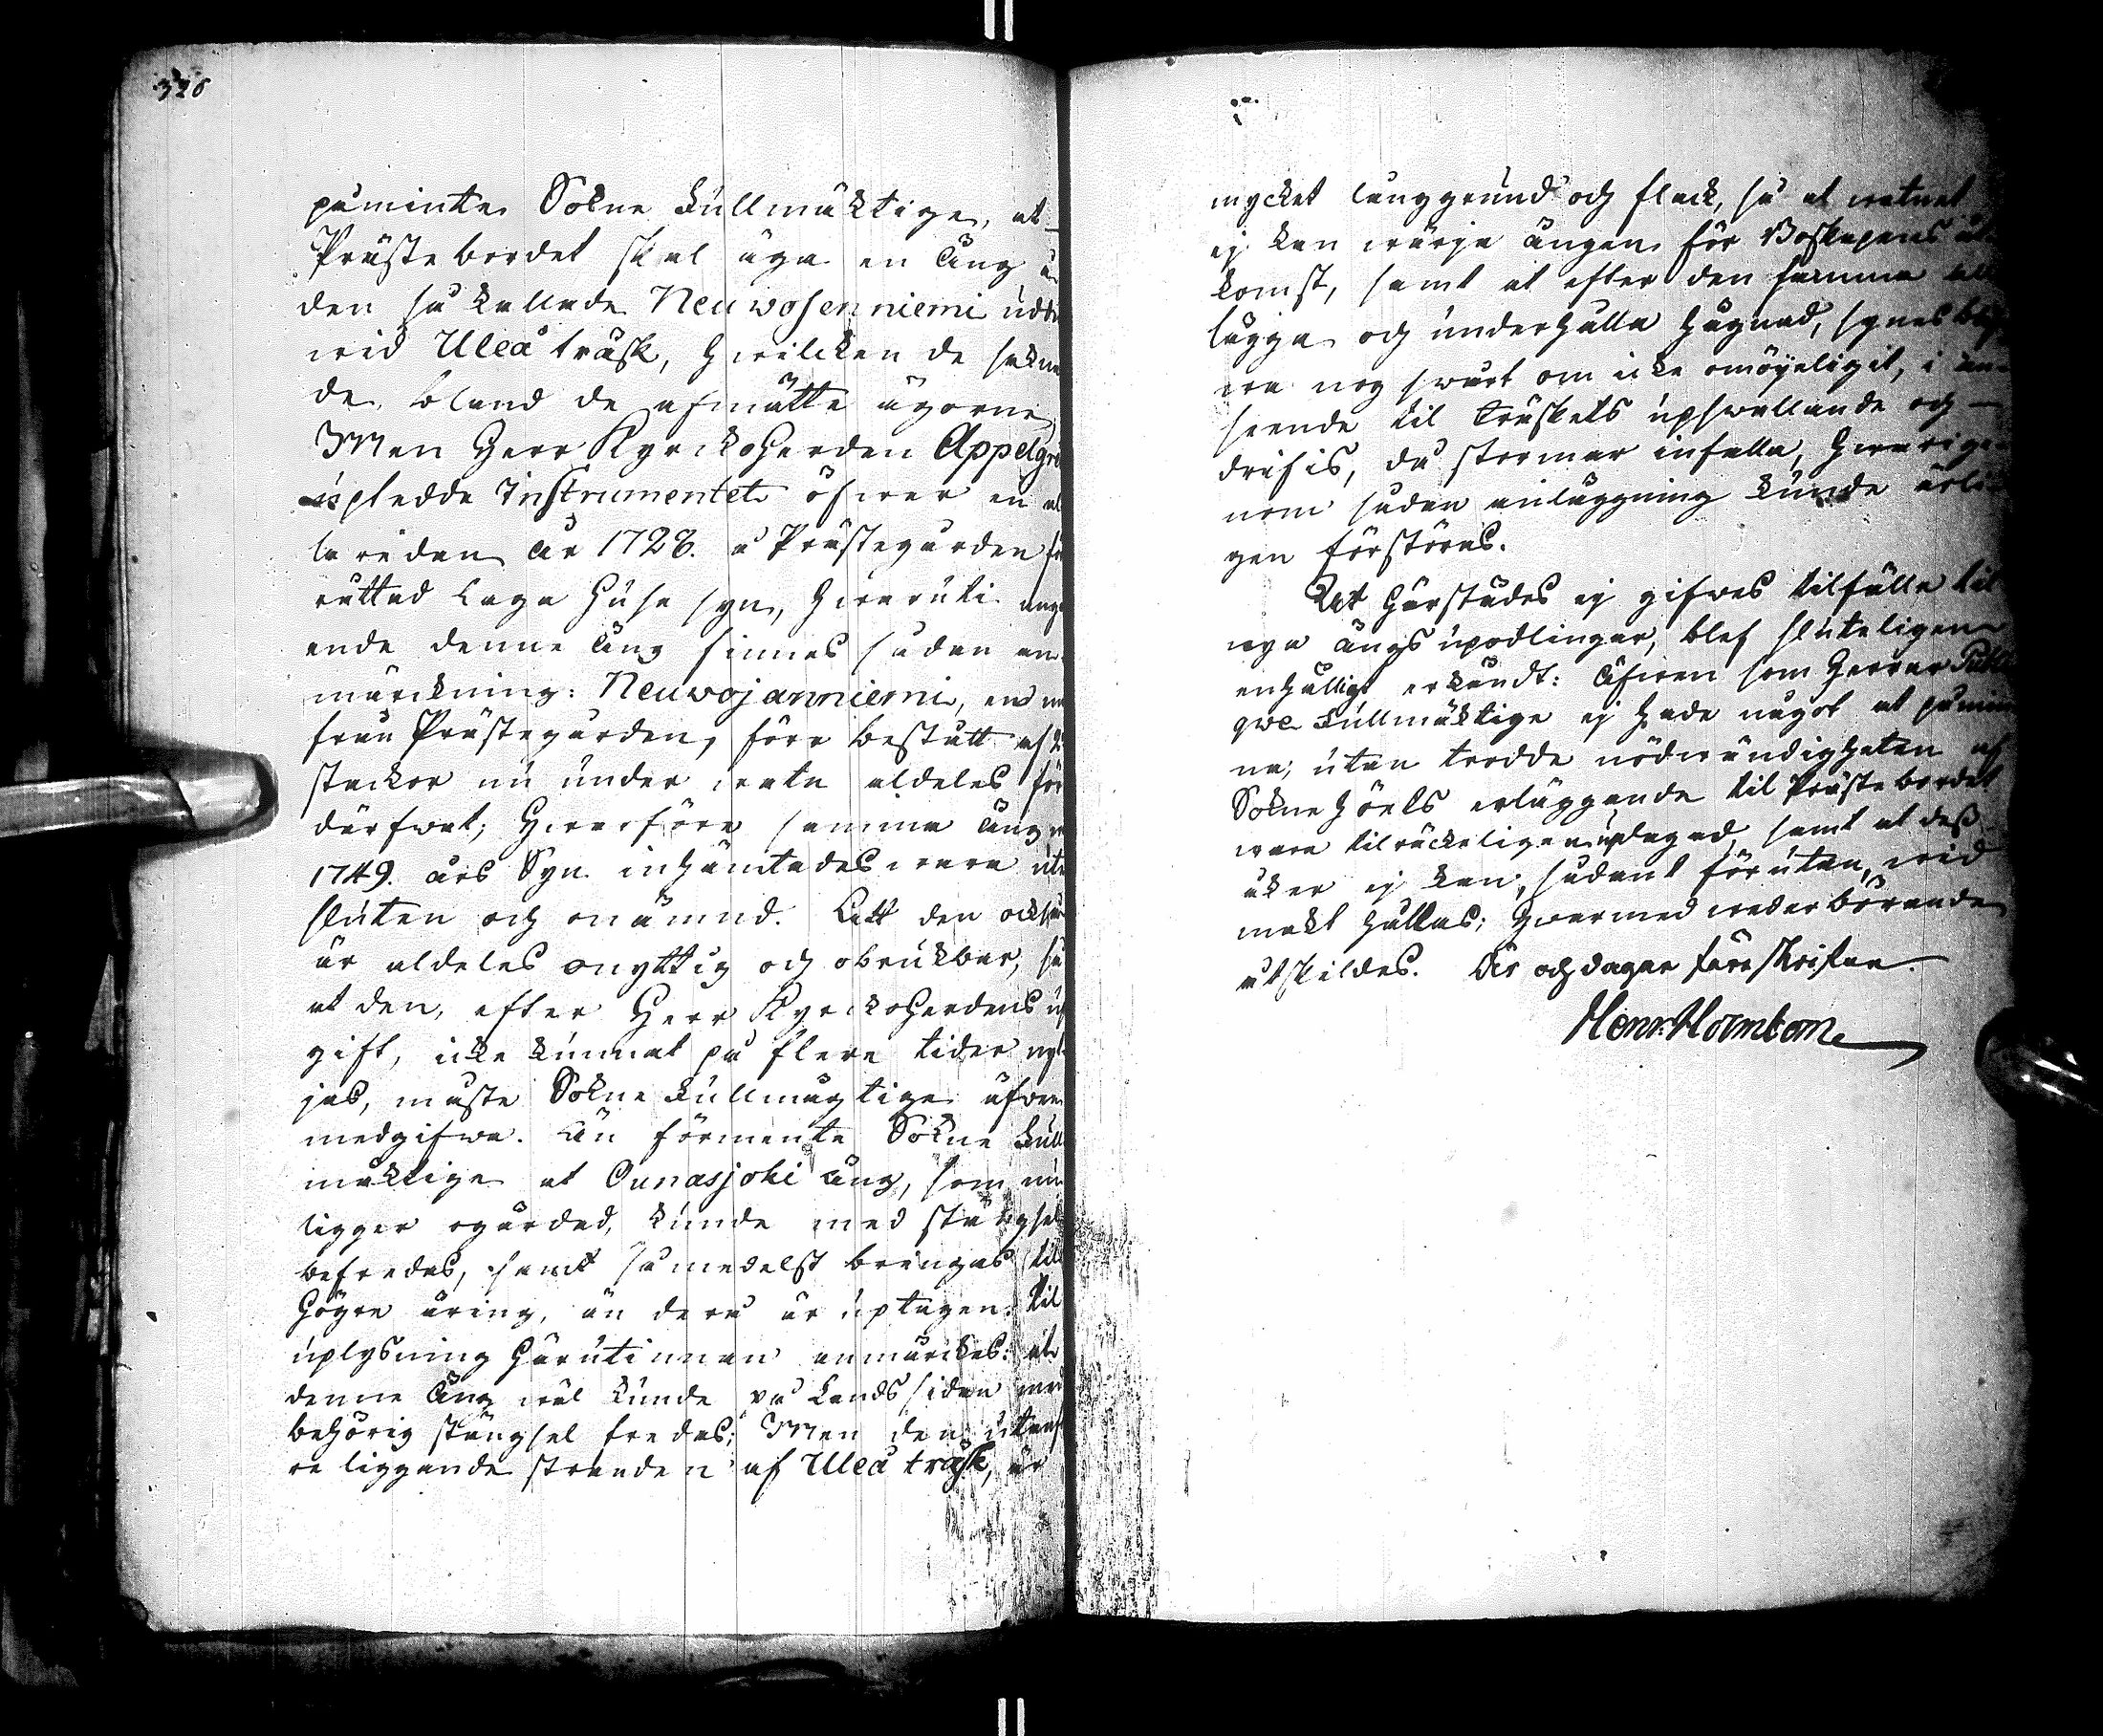 326
påminte Sokne Fullmäktige, at
Prästebordet skal äga en äng å
den så kallade Neuwosenniemi udde
wid Uleå träsk, hwilcken de sakna
de bland de afmätte ägorne,
Men Herr Kyrckoherden Appelgre
upledde Instrumentet öfwer en al
la redan år 1728. å Prästegården för
rättad Laga Huse syn, hwaruti ang
ende denne äng finnes sådan an
märckning: Neuwojanniemi, en
från Prästegården, före bestått af 2
stackor nu under watn aldeles för
därfwat; Hwarföre samma äng
1749. års Syn inhämtades wara ute
sluten och onämnd. Att den också
är aldeles onyttig och obrukbar, så
at den, efter Herr Kyrckoherdens up
gift, icke kunnat på flere tider nyt
jas, måste Sokne Fullmägtige äfwen
medgifwa. Än förmente Sokne Full
mäktige at Ounasjoki äng, som nu
ligger ogärdad, kunde med stängsel
befredas, samt såmedelst bringas til
högre äring, än deru är uptagen. Til
uplysning härutinnan anmärckes: at
denne äng wäl kunde på Landssidan med
behörig stängsel fredas; Men den utanf
re liggande stranden af Uleå träsk, är
mycket långgrund och flack, så at watnet
ej kan wärja ängen för Boskapens åt
komst, samt at efter den samma
lägga och underhålla hägnad, synes
era nog swårt om icke omöjeligit, i an
seende til Träskets upswallande och
drifis, då stormar infalla, hwarige
nom sådan anläggning kunde årli
gen förstöras.
At härstädes ej gifwes tilfälle til
nya ängs upodlingar, blef sluteligen
enhälligt erkändt: Äfwen som Herrar
qwe Fullmäktige ej hade något at påmin
na, utan trodde nödwändigheten af
Sokne höets erläggande til Prästebordet
wara tilräckeligen updagad, samt at dess
åker ej kan, sådant förutan, wid
makt hållas; hwarmed wederbörande
åtskildes. År och dagar förr skrifne.
Henr. Hornborn